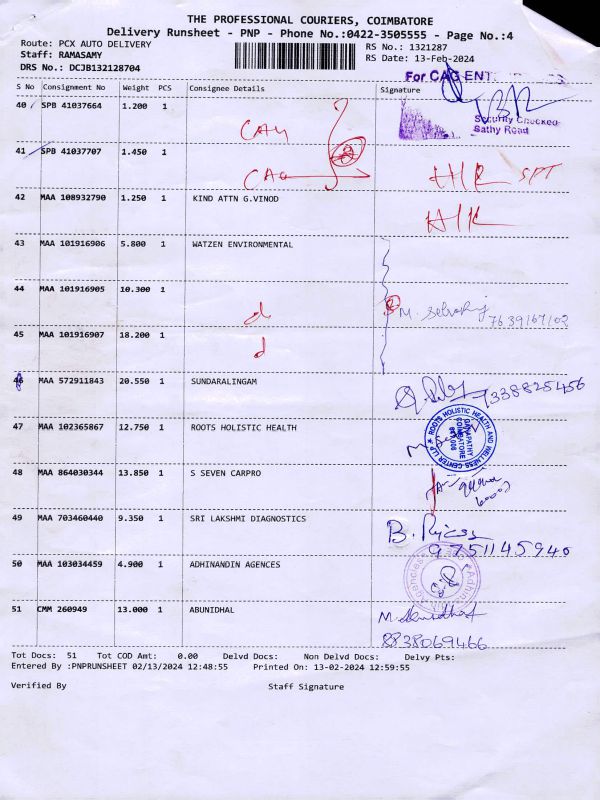 THE PROFESSIONAL COURIERS, COIMBATORE
Delivery Runsheet - PNP - Phone No.:0422-3505555 - Page No.:4
Route: PCX AUTO DELIVERY RS No.: 1321287
Staff: RAMASAMY RS Date: 13-Feb-2024
DRS No.: DCJB132128704
For CAG ENT
S No Consignment No Weight PCS Consignee Details Signature
40 SPB 41037664 1.200 1
Security Checked
Sathy Road
41 SPB 41037707 1.450 1
CAG
H/R SPT
42 MAA 108932790 1.250 1 KIND ATTN G.VINOD
H/R
43 MAA 101916906 5.800 1 WATZEN ENVIRONMENTAL
44 MAA 101916905 10.300 1
d M. Selvaraj
7639167102
45 MAA 101916907 18.200 1
d
46 MAA 572911843 20.550 1 SUNDARALINGAM
7338825456
47 MAA 102365867 12.750 1 ROOTS HOLISTIC HEALTH
ROOTS HOLISTIC HEALTH AND WELLNESS CENTER LLP
GANAPATHY
COIMBATORE
48 MAA 864030344 13.850 1 S SEVEN CARPRO
49 MAA 703460440 9.350 1 SRI LAKSHMI DIAGNOSTICS
B.
9751145940
50 MAA 103034459 4.900 1 ADHINANDIN AGENCES
51 CMM 260949 13.000 1 ABUNIDHAL
8838069466
Tot Docs: 51 Tot COD Amt: 0.00 Delvd Docs: Non Delvd Docs: Delvy Pts:
Entered By :PNPRUNSHEET 02/13/2024 12:48:55 Printed On: 13-02-2024 12:59:55
Verified By Staff Signature